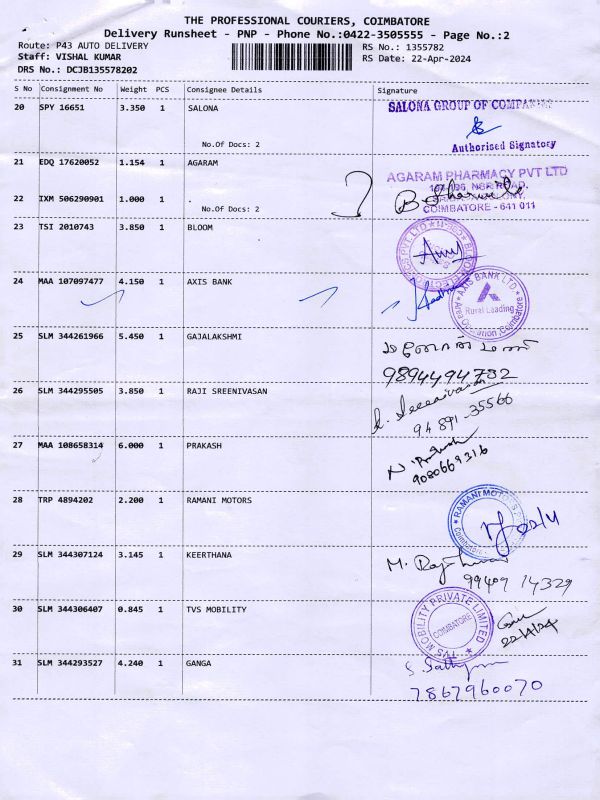 THE PROFESSIONAL COURIERS, COIMBATORE
Delivery Runsheet - PNP - Phone No.:0422-3505555 - Page No.:2
Route: P43 AUTO DELIVERY
RS No.: 1355782
Staff: VISHAL KUMAR
RS Date: 22-Apr-2024
DRS No.: DCJB135578202
S No Consignment No Weight PCS Consignee Details Signature
20 SPY 16651 3.350 1 SALONA
SALONA GROUP OF COMPANIES
No.Of Docs: 2
Authorised Signatory
21 EDQ 17620052 1.154 1 AGARAM
AGARAM PHARMACY PVT LTD
NSR ROAD,
22 IXM 506290901 1.000 1 .
No.Of Docs: 2
COIMBATORE - 641 011
23 TSI 2010743 3.850 1 BLOOM
24 MAA 107097477 4.150 1 AXIS BANK
AXIS BANK LTD
Rural Leading
Coimbatore
25 SLM 344261966 5.450 1 GAJALAKSHMI
9894494732
26 SLM 344295505 3.850 1 RAJI SREENIVASAN
94891-35566
27 MAA 108658314 6.000 1 PRAKASH
9080669316
28 TRP 4894202 2.200 1 RAMANI MOTORS
RAMANI MOTORS
Coimbatore
29 SLM 344307124 3.145 1 KEERTHANA
99409 14329
30 SLM 344306407 0.845 1 TVS MOBILITY
TVS MOBILITY PRIVATE LIMITED
COIMBATORE
22/4/24
31 SLM 344293527 4.240 1 GANGA
7867960070